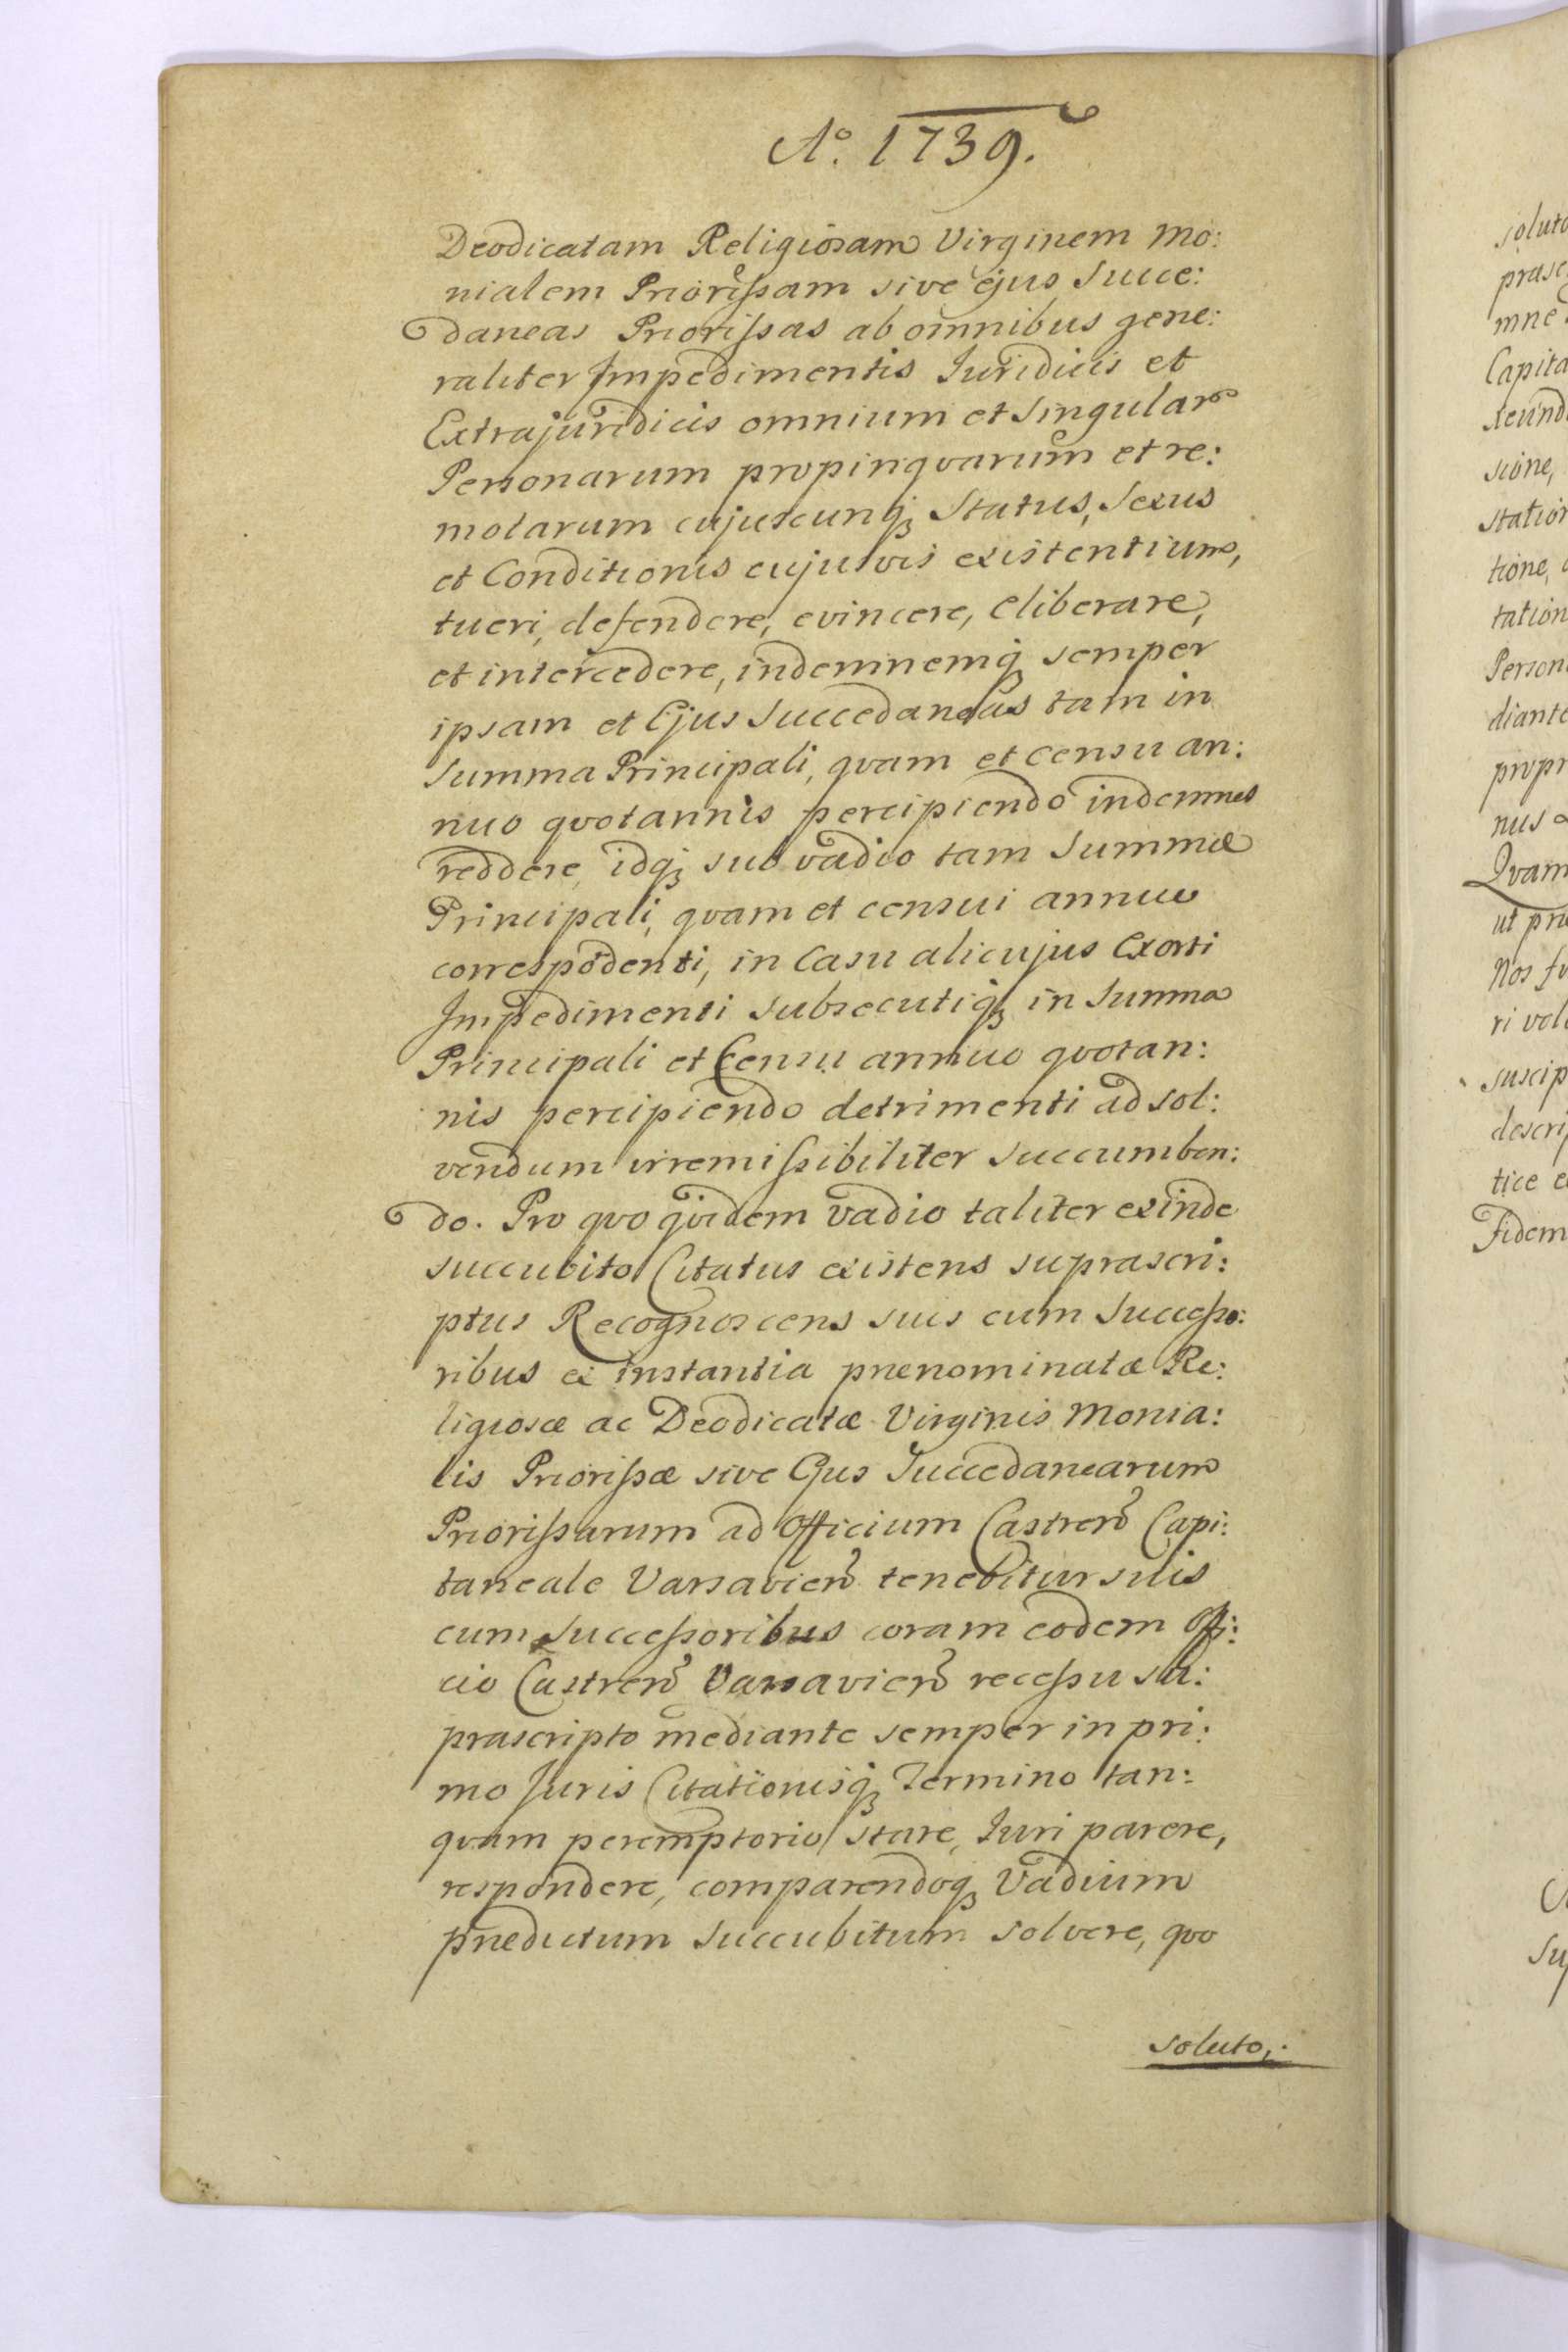 Aº. 1739.
Deodicatam Religiosam Virginem Mo:
nialem Priorissam sive ejus Succe:
daneas Priorissas ab omnibus gene:
raliter Impedimentis Juridicis et
Extrajuridicis omnium et Singular
Personarum propinqvarum et re:
motarum cujuscunq; Status, Sexus
et Conditionis cujusvis existentium,
tueri, defendere, evincere, eliberare,
et intercedere, indemnemq; semper
ipsam et Ejus Succedaneas tam in
Summa Principali, qvam et Censu an:
nuo qvotannis percipiendo indemnes
reddere, idq; sub vadio tam Summæ
Principali, qvam et censui annuo
correspōdenti, in Casu alicujus Exorti
Impedimenti Subsecutiq; in Summa
Principali et Censu annuo qvotan:
nis percipiendo detrimenti ad sol:
vendum irremissibiliter succumben:
do. Pro qvo qvidem vadio taliter exinde
succubito Citatus existens suprascri:
ptus Recognoscens suis cum Successo:
ribus ex instantia prænominatæ Re:
ligiosæ ac Deodicatæ Virginis Monia:
lis Priorissæ sive Ejus Succedanearum
Priorissarum ad Officium Castren Capi:
taneale Varsavien tenebitur suis
cum Successoribus coram eodem Offi:
cio Castren Varsavien recessu su:
prascripto mediante semper in pri:
mo Juris Citationisq; Termino tan:
qvam peremptorio stare, Juri parere,
respondere, comparendoq; Vadium
prædictum Succubitum solvere, qvo
soluto,.
soluto
mne
Capita
sione,
tione,
Person
diante
propr
nus
Qvam
ut
Nos
suscip
descri
tice
Fidem